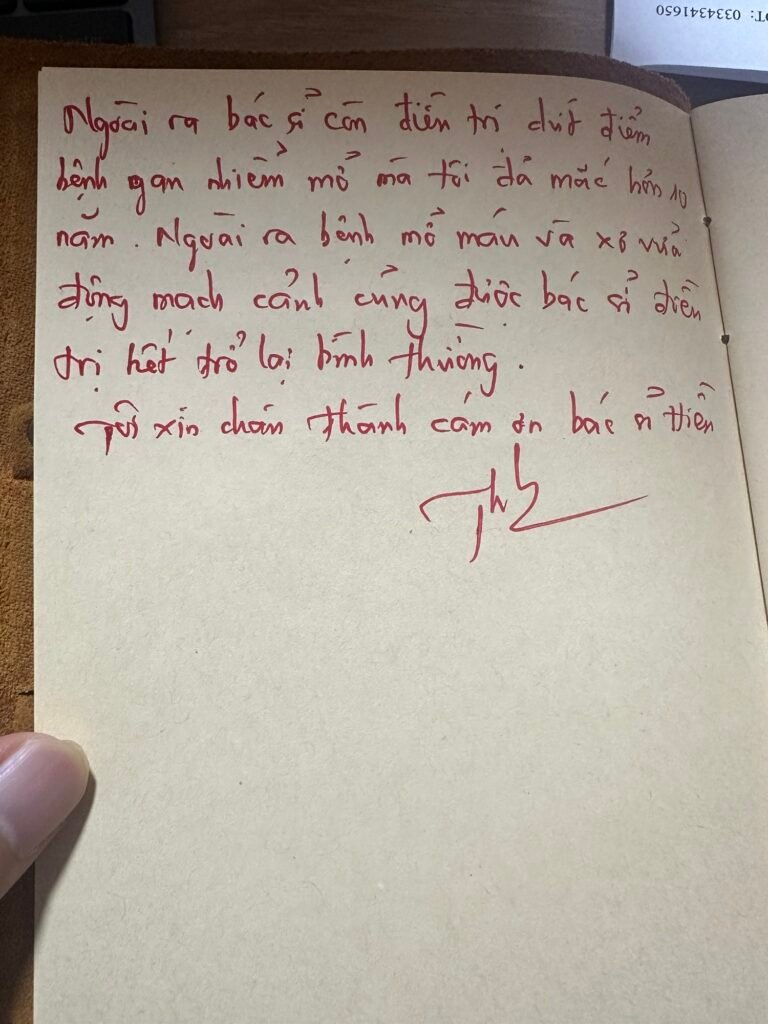 ĐT: 0334341650
Ngoài ra bác sĩ còn điều trị dứt điểm
bệnh gan nhiễm mỡ mà tôi đã mắc hơn 10
năm. Ngoài ra bệnh mỡ máu và xơ vữa
động mạch cảnh cũng được bác sĩ điều
trị hết trở lại bình thường.
Tôi xin chân thành cám ơn bác sĩ Hiền